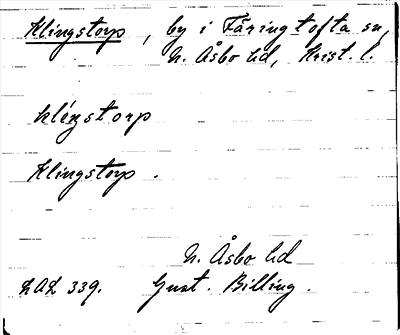 Klingstorp, by i Färingtofta sn,
N. Åsbo hd, Krist. l.
klengstorp
Klingstorp.
N. Åsbo hd
LAL 339. Gust. Billing.